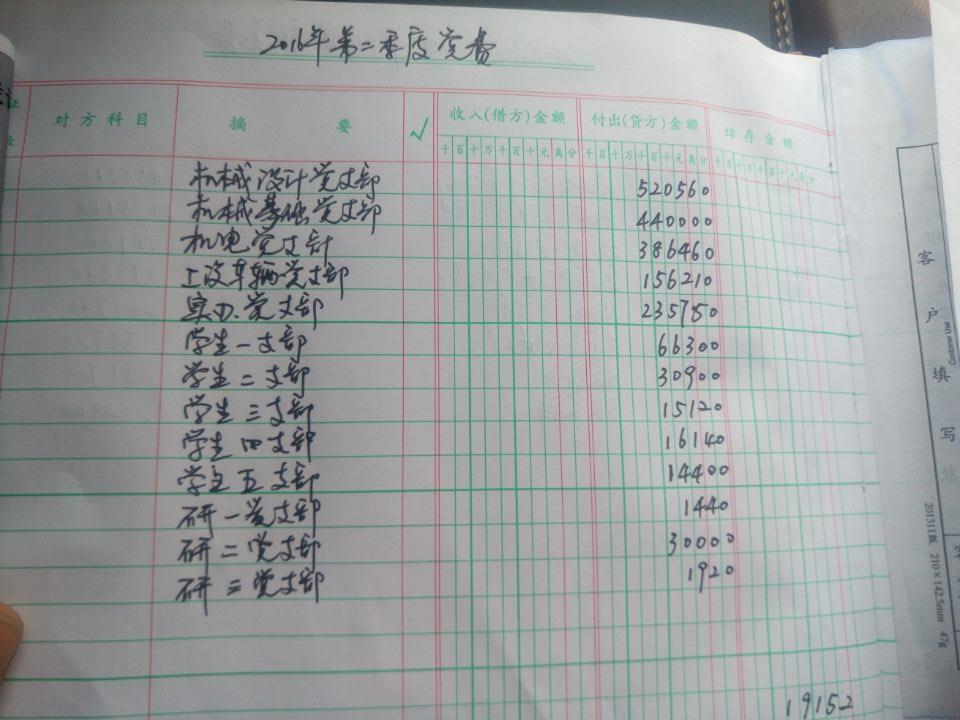 2016年第二季度党费
对方科目 摘要 √ 收入(借方)金额 付出(贷方)金额 结存金额
千百十万千百十元角分 千百十万千百十元角分 千百十万千百十元角分
机械设计党支部 520560
机械基础党支部 440000
机电党支部 386460
工设车辆党支部 156210
党支部 235780
学生一支部 66300
学生二支部 30900
学生三支部 15120
学生四支部 16140
学生五支部 14400
研一党支部 1440
研二党支部 30000
研三党支部 1920
19152
客户填写
201311版 210×142.5mm